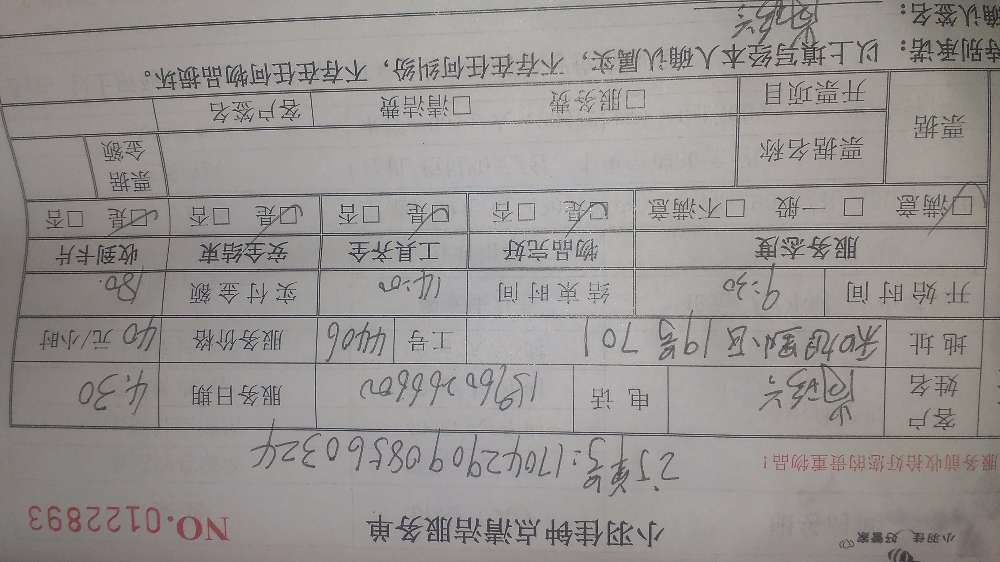 小羽佳 好管家
小羽佳钟点清洁服务单
NO.0122893
服务前收拾好您的贵重物品！
订单号:1704290908560324
客户姓名 电话 13960266600 服务日期 4.30
地址 19号701 工号 4406 服务价格 40元/小时
开始时间 9:30 结束时间 14:00 实付金额 180.
服务态度 物品完好 工具齐全 安全结束 收到卡片
☑满意 □一般 □不满意 ☑是 □否 ☑是 □否 ☑是 □否 ☑是 □否
票据 票据名称 票据金额
开票项目 □服务费 □清洁费 客户签名
特别承诺：以上填写经本人确认属实，不存在任何纠纷，不存在任何物品损坏。
确认签名：